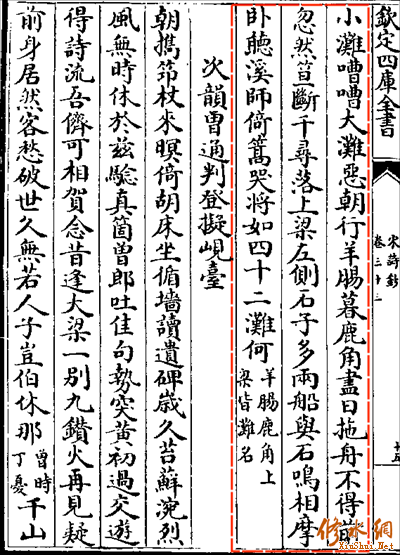 欽定四庫全書
宋詩鈔
卷三十二
小灘嘈嘈大灘惡朝行羊腸暮鹿角盡日拖舟不得前
忽然笪斷千尋落上梁左側石子多兩船與石鳴相摩
卧聽溪師倚篙哭將如四十二灘何羊腸鹿角上
梁皆灘名
次韻曾通判登擬峴臺
朝擕笻杖來暝倚胡床坐循墻讀遺碑歲久苔蘚涴烈
風無時休於兹驗真箇曾郎吐佳句勢突黃初過交遊
得詩流吾儕可相賀念昔逢大梁一別九鑽火再見疑
前身居然客愁破世久無若人子豈伯休那曾時
丁憂千山
修水網
XiuShui.Net